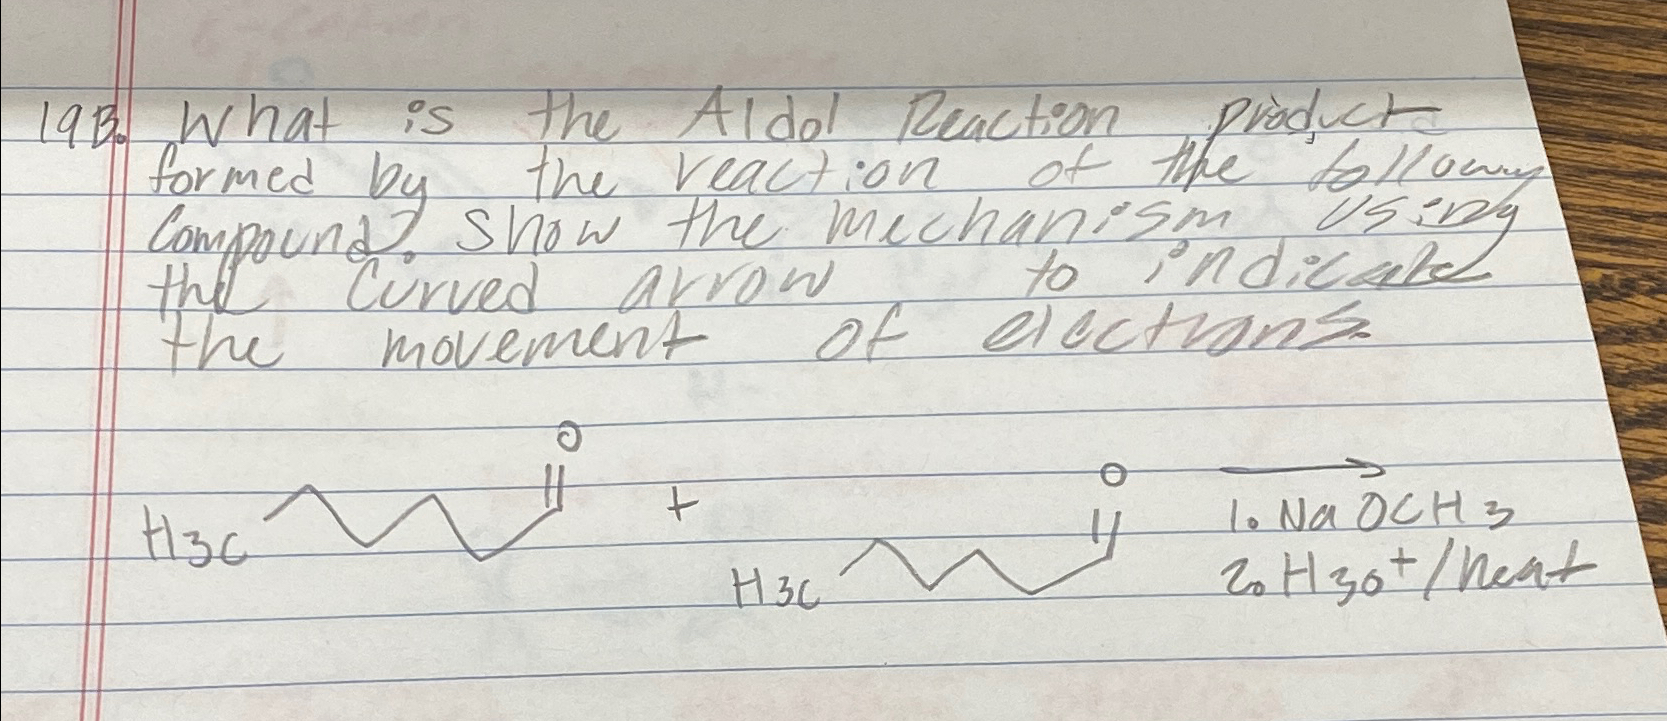 19B. What is the Aldol Reaction product
formed by the reaction of the following
Compound? Show the mechanism using
the Curved arrow to indicate
the movement of electrons.
O
O
H3C
+
H3C
1. NaOCH3
2. H3O+/heat